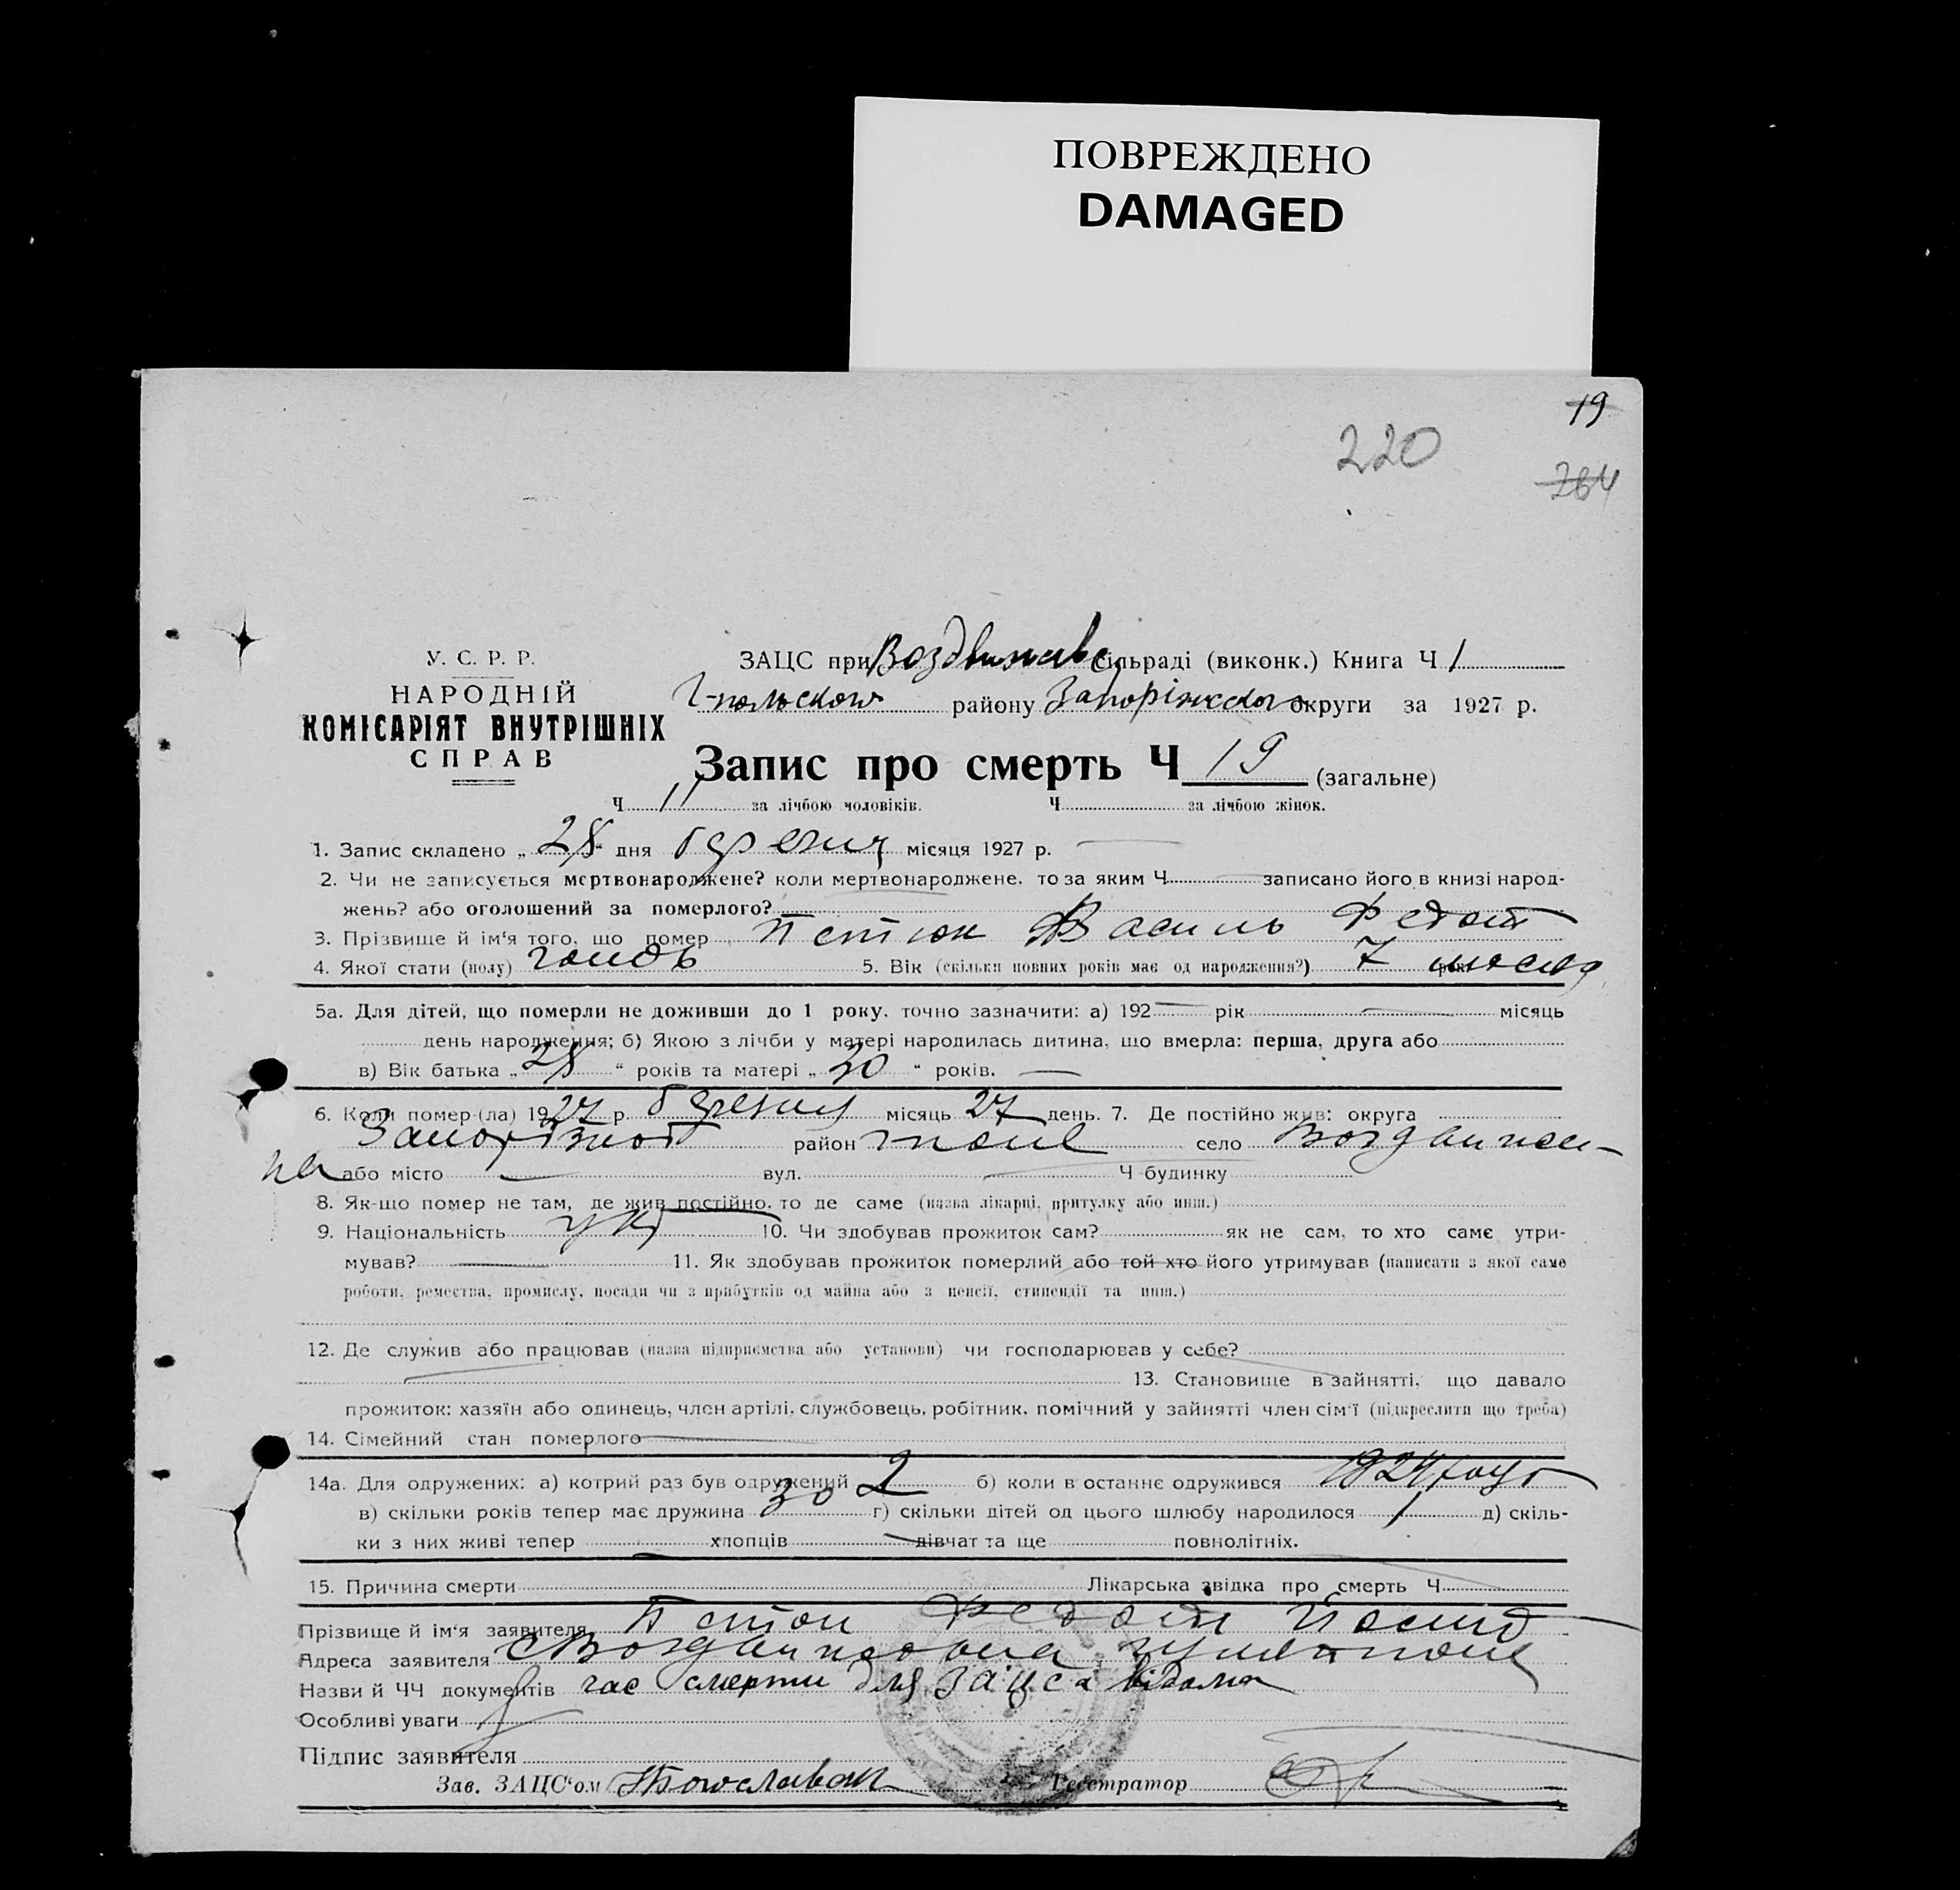 ПОВРЕЖДЕНО
DAMAGED
19
220
764
У. С. Р. Р.
НАРОДНІЙ
КОМІСАРІЯТ ВНУТРІШНІХ
СПРАВ
ЗАЦС при Воздвижевс сільраді (виконк.) Книга Ч 1
Г-польского району Запоріжского округи за 1927 р.
Запис про смерть Ч 19 (загальне)
Ч 11 за лічбою чоловіків. Ч за лічбою жінок.
1. Запис складено „ 28 “ дня березня місяця 1927 р.
2. Чи не записується мертвонароджене? коли мертвонароджене, то за яким Ч записано його в книзі народ-
жень? або оголошений за померлого?
3. Прізвище й ім‘я того, що помер Василь Федот
4. Якої стати (полу) 5. Вік (скільки повних років має од народження?) 7
5а. Для дітей, що померли не доживши до 1 року, точно зазначити: а) 192 рік місяць
день народження; б) Якою з лічби у матері народилась дитина, що вмерла: перша, друга або
в) Вік батька „ 28 “ років та матері „ 30 “ років.
6. Коли помер-(ла) 1927 р. березня місяць 27 день. 7. Де постійно жив: округа
район село
на або місто вул. Ч будинку
8. Як-що помер не там, де жив постійно, то де саме (назва лікарці, притулку або инш.)
9. Національність укр 10. Чи здобував прожиток сам? як не сам, то хто саме утри-
мував? 11. Як здобував прожиток померлий або той хто його утримував (написати з якої саме
роботи, ремества, промислу, посади чи з прибутків од майна або з пенсії, стипендії та инш.)
12. Де служив або працював (назва підприємства або установи) чи господарював у себе?
13. Становище в зайнятті, що давало
прожиток: хазяїн або одинець, член артілі, службовець, робітник, помічний у зайнятті член сім‘ї (підкреслити що треба)
14. Сімейний стан померлого
14а. Для одружених: а) котрий раз був одружений 2 б) коли в останнє одружився 1924 році
в) скільки років тепер має дружина 30 г) скільки дітей од цього шлюбу народилося 1 д) скіль-
ки з них живі тепер хлопців дівчат та ще повнолітніх.
15. Причина смерти Лікарська звідка про смерть Ч
Прізвище й ім‘я заявителя Федот
Адреса заявителя
Назви й ЧЧ документів час смерти для Зацса відома
Особливі уваги
Підпис заявителя
Зав. ЗАЦС‘ом Реєстратор